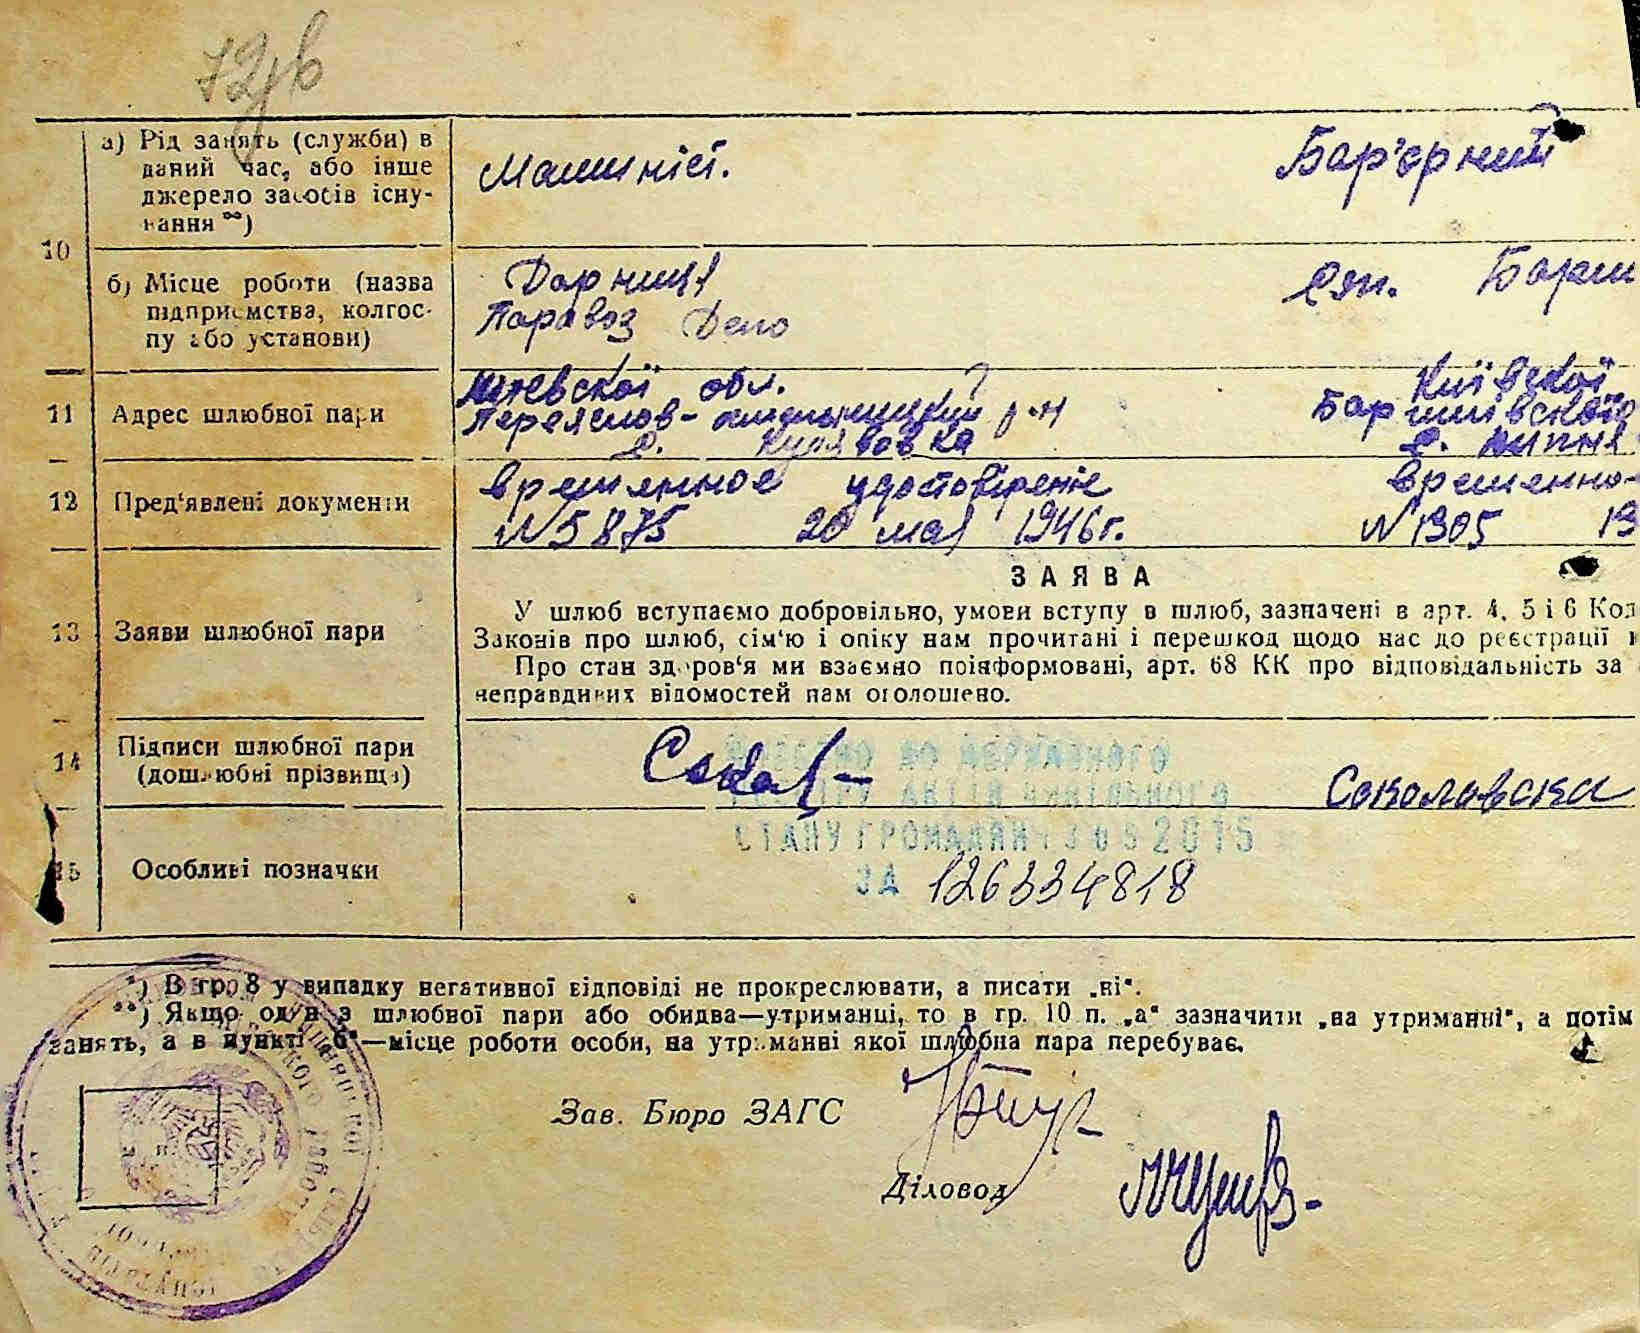 72
а) Рід занять (служби) в
даний час, або інше
джерело засобів існу-
вання **)
Машиніст.
Бар'єрний
10
б) Місце роботи (назва
підприємства, колгос-
пу або установи)
Дарниця
Паравоз Депо
Барш
11
Адрес шлюбної пари
обл.
Переяслов- р-н
с.
Київської
Баришівського
с.
12
Пред'явлені документи
временное удостовіреніє
N 5875 20 мая 1946г.
временно-
N 1305 19
13
Заяви шлюбної пари
ЗАЯВА
У шлюб вступаємо добровільно, умови вступу в шлюб, зазначені в арт. 4, 5 і 6 Код
Законів про шлюб, сім'ю і опіку нам прочитані і перешкод щодо нас до реєстрації
Про стан здоров'я ми взаємно поінформовані, арт. 68 КК про відповідальність за
неправдивих відомостей нам оголошено.
14
Підписи шлюбної пари
(дошлюбні прізвища)
Соколовска
ДО ДЕРЖАВНОГО
РЕЄСТРУ АКТІВ ЦИВІЛЬНОГО
СТАНУ ГРОМАДЯН 2015
ЗА 126334818
15
Особливі позначки
*) В гр. 8 у випадку негативної відповіді не прокреслювати, а писати „ні“.
**) Якщо один з шлюбної пари або обидва—утриманці, то в гр. 10 п. „а“ зазначити „на утриманні“, а потім
занять, а в пункті „б“—місце роботи особи, на утриманні якої шлюбна пара перебуває.
Зав. Бюро ЗАГС
Діловод